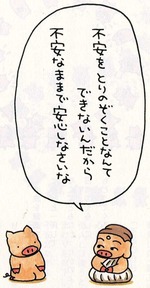 不安をとりのぞくことなんて
できないんだから
不安なままで安心しなさいな